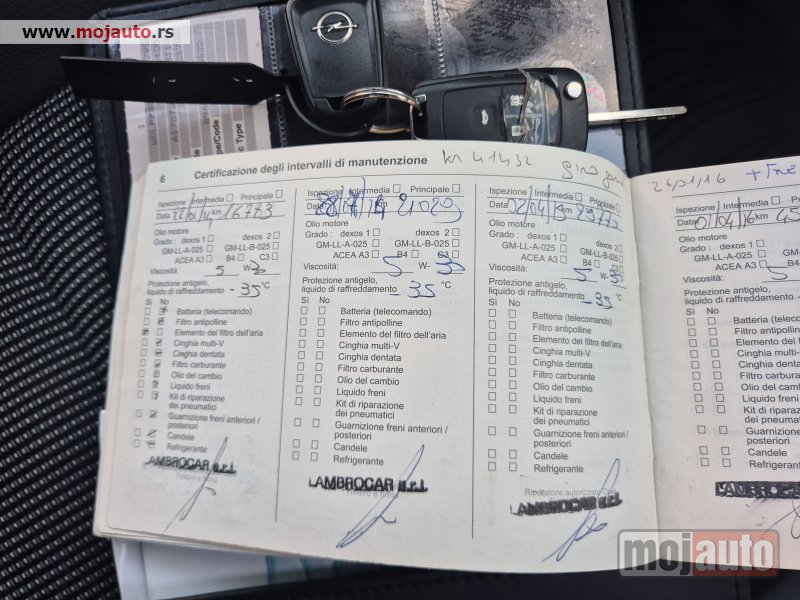 www.mojauto.rs
Type/Code
c Type
6 Certificazione degli intervalli di manutenzione km 41432
Ispezione Intermedia Principale
Data 16783
Olio motore
Grado : dexos 1 dexos 2
GM-LL-A-025 GM-LL-B-025
ACEA A3 B4 C3
Viscosità: 5 W-30
Protezione antigelo,
liquido di raffreddamento -35 °C
Sì No
Batteria (telecomando)
Filtro antipolline
Elemento del filtro dell'aria
Cinghia multi-V
Cinghia dentata
Filtro carburante
Olio del cambio
Liquido freni
Kit di riparazione
dei pneumatici
Guarnizione freni anteriori /
posteriori
Candele
Refrigerante
LAMBROCAR s.r.l.
Timbro e firma
Ispezione Intermedia Principale
Data
Olio motore
Grado : dexos 1 dexos 2
GM-LL-A-025 GM-LL-B-025
ACEA A3 B4 C3
Viscosità: 5 W-
Protezione antigelo,
liquido di raffreddamento -35 °C
Sì No
Batteria (telecomando)
Filtro antipolline
Elemento del filtro dell'aria
Cinghia multi-V
Cinghia dentata
Filtro carburante
Olio del cambio
Liquido freni
Kit di riparazione
dei pneumatici
Guarnizione freni anteriori /
posteriori
Candele
Refrigerante
LAMBROCAR s.r.l.
Timbro e firma
Ispezione Intermedia Principale
Data 02/04/
Olio motore
Grado : dexos 1 dexos 2
GM-LL-A-025 GM-LL-B-025
ACEA A3 B4
Viscosità: 5 W-
Protezione antigelo,
liquido di raffreddamento -35 °C
Sì No
Batteria (telecomando)
Filtro antipolline
Elemento del filtro dell'aria
Cinghia multi-V
Cinghia dentata
Filtro carburante
Olio del cambio
Liquido freni
Kit di riparazione
dei pneumatici
Guarnizione freni anteriori /
posteriori
Candele
Refrigerante
Riparatore autorizzato Opel
LAMBROCAR
26/01/16
Ispezione Intermedia
Data 01/04/16 km
Olio motore
Grado : dexos 1
GM-LL-A-025
ACEA A3
Viscosità: 5
Protezione antigelo,
liquido di raffreddamento
Sì No
Batteria (telecom
Filtro antipolline
Elemento del filtro
Cinghia multi-V
Cinghia dentata
Filtro carburante
Olio del cambio
Liquido freni
Kit di riparazione
dei pneumatici
Guarnizione freni
posteriori
Candele
Refrigerante
LAMBROCAR
mojauto